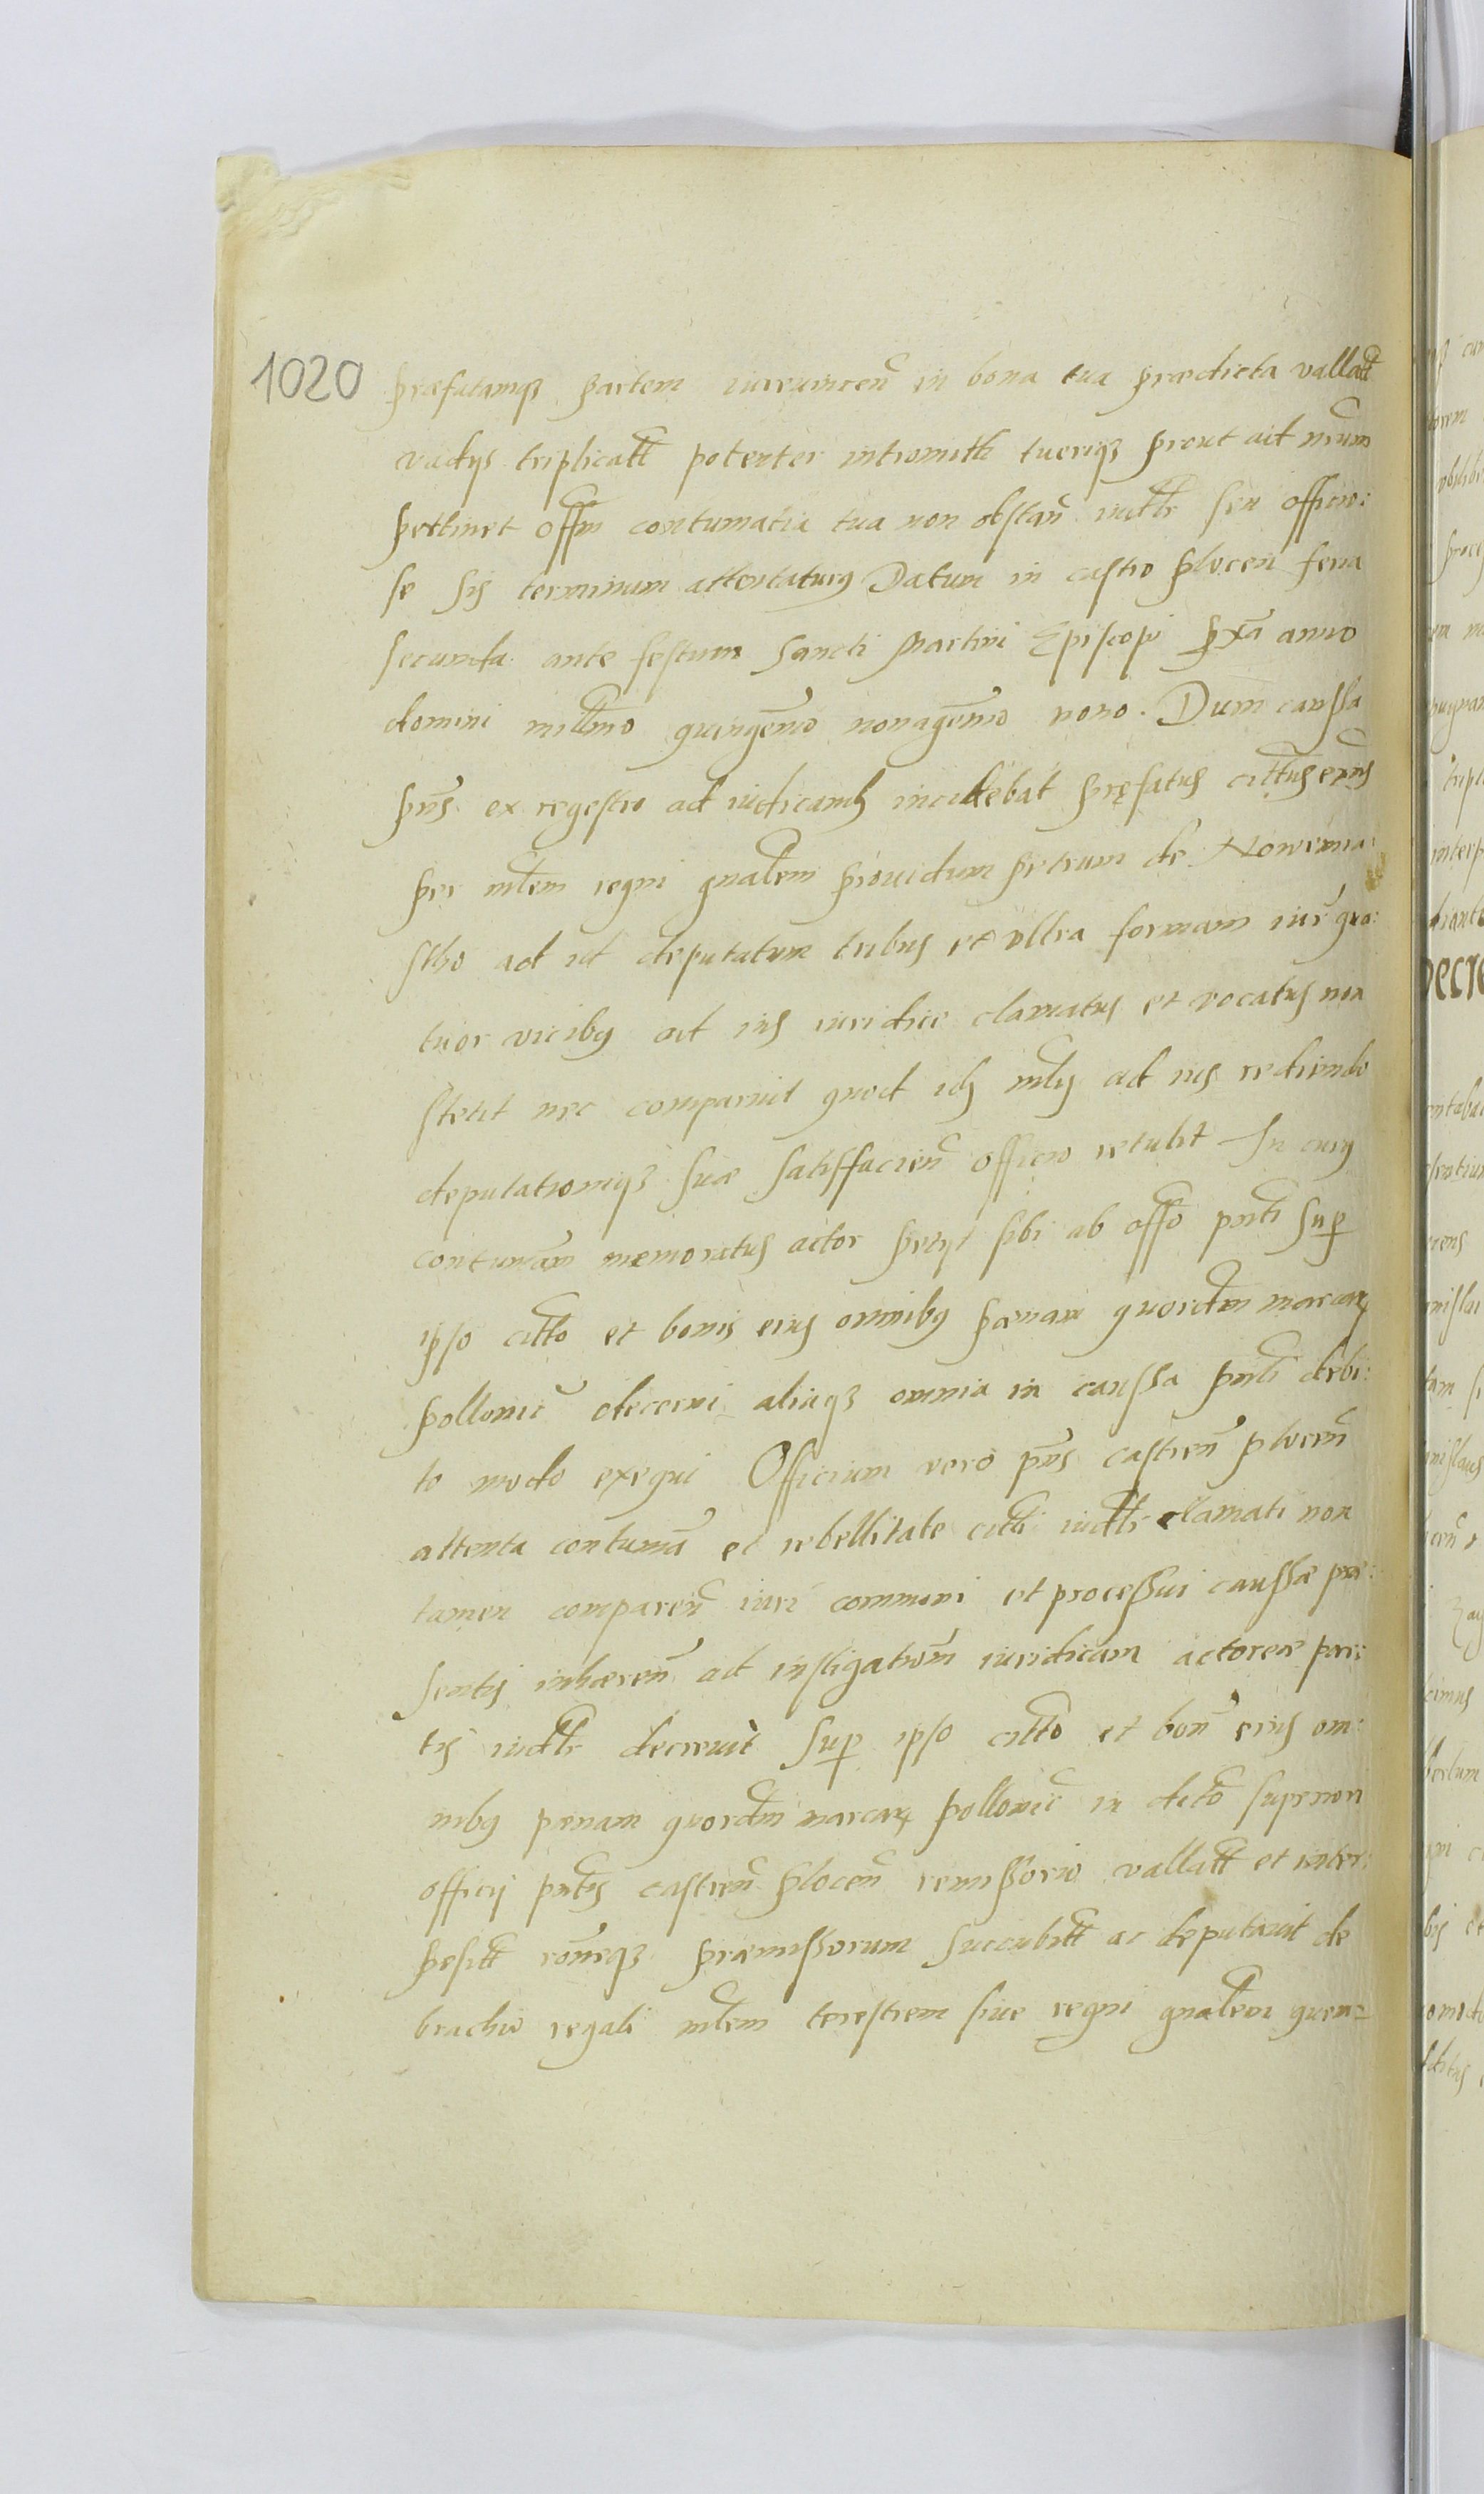 1020
præfatamq3 partem iureuincen̄ in bona tua prædicta vallatt
vadys triplicatt potenter intromitti tueriq3 prout ad nrum
pertinet offm contumatia tua non obstan̄ iudtr seu officio:
se sis terminum attentaturus Datum in castro plocen̄ feria
secunda ante festum Sancti Martini Episcopi pxa anno
domini millmo quingenmo nonagesmo nono. Dum caussa
pns ex regestro ad iudicand incidebat pręfatus cittus eius
per mlem regni gnalem prouidum petrum de Nowemia
stho ad id deputatum tribus et ultra formam iur qua:
tuor vicibus ad ius iuridice clamatus et vocatus non
stetit nec comparuit quod id mls ad ius rediendo
deputationiq3 suæ satisfacien̄ officio retulit In cuius
contumam memoratus actor petyt sibi ab offo pnti sup
ipso citto et bonis eius omnibus pænam quordm marcar
pollonic̄ decerni aliaq3 omnia in caussa pnti debi:
to modo exequi Officium vero pns castren̄ plocen̄
attenta contuma et rebellitate citti iudtr clamati non
tamen comparen̄ iuri communi et processui caussæ præ:
sentis inhæren̄ ad instigationem iuridicam actoreæ par:
tis iudtr decreuit sup ipso citto et bon̄ eius om:
nibus pænam quordm marcar pollonic̄ in dicto superiori
officij pntis castren̄ plocen̄ remissorio vallatt et inter:
positt roneq3 præmissorum succubitt ac deputauit de
brachio regali mlem terestrem siue regni gnalem quen=